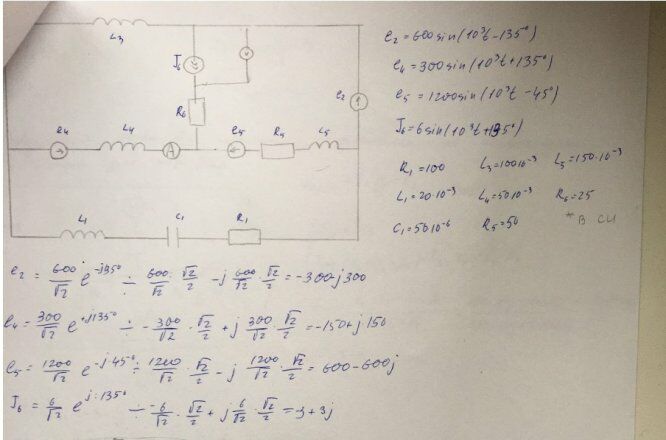 L3
J6
v
R6
e2
e4
L4
A
e5
R5
L5
L1
C1
R1
e2 = 600sin(10³t-135°)
e4 = 300sin(10³t+135°)
e5 = 1200sin(10³t-45°)
J6 = 6sin(10³t+135°)
R1=100 L3=100·10⁻³ L5=150·10⁻³
L1=20·10⁻³ L4=50·10⁻³ R6=25
C1=50·10⁻⁶ R5=50 * В СИ
e2 = 600/√2 e^-j135° ÷ 600/√2 · √2/2 - j 600/√2 · √2/2 = -300-j300
e4 = 300/√2 e^+j135° ÷ - 300/√2 · √2/2 + j 300/√2 · √2/2 = -150+j150
e5 = 1200/√2 e^-j·45° ÷ 1200/√2 · √2/2 - j 1200/√2 · √2/2 = 600-600j
J6 = 6/√2 e^j·135° ÷ -6/√2 · √2/2 + j 6/√2 · √2/2 = -3+3j